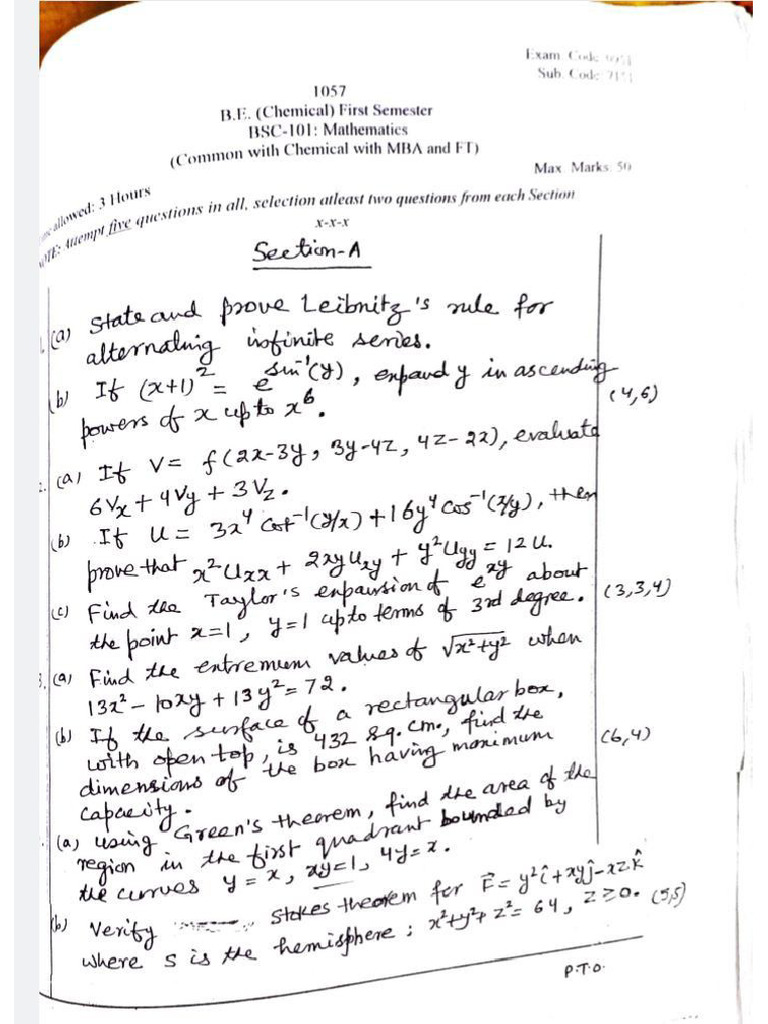 Exam. Code:
Sub. Code:
1057
B.E. (Chemical) First Semester
BSC-101: Mathematics
(Common with Chemical with MBA and FT)
Max. Marks: 50
allowed: 3 Hours
NOTE: Attempt five questions in all, selection atleast two questions from each Section
x-x-x
Section-A
(a) State and prove Leibnitz's rule for
alternating infinite series.
(b) If (x+1)² = e^sin⁻¹(y), expand y in ascending
powers of x upto x⁶. (4,6)
(a) If V = f(2x-3y, 3y-4z, 4z-2x), evaluate
6Vx + 4Vy + 3Vz.
(b) If u = 3x⁴ cot⁻¹(y/x) + 16y⁴ cos⁻¹(x/y), then
prove that x²Uxx + 2xyUxy + y²Uyy = 12u.
(c) Find the Taylor's expansion of e^xy about
the point x=1, y=1 upto terms of 3rd degree. (3,3,4)
(a) Find the extremum values of √x²+y² when
13x² - 10xy + 13y² = 72.
(b) If the surface of a rectangular box,
with open top, is 432 sq. cm., find the
dimensions of the box having maximum (6,4)
capacity.
(a) Using Green's theorem, find the area of the
region in the first quadrant bounded by
the curves y = x, xy = 1, 4y = x.
(b) Verify Stokes theorem for F⃗ = y²î + xyĵ - xzk̂
where S is the hemisphere; x²+y²+z² = 64, z≥0. (5,5)
P.T.O.